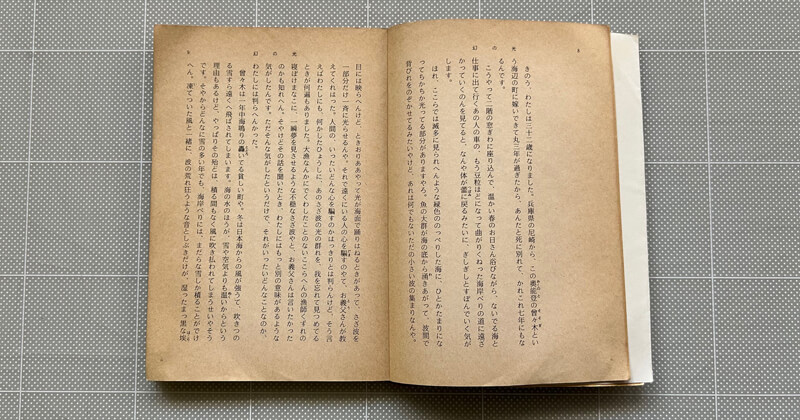 幻の光
きのう、わたしは三十二歳になりました。兵庫県の尼崎から、この奥能登の曾々木とい
う海辺の町に嫁いできて丸三年が過ぎたから、あんたと死に別れて、かれこれ七年にもな
るんです。
こうやって二階の窓ぎわに座り込んで、温かい春のお日さん浴びながら、ないでる海と
仕事に出て行くあの人の車の、もう豆粒ほどになって曲がりくねった海岸べりの道に遠ざ
かっていくのんを見てると、なんや体が蕾に戻るみたいに、ぎしぎしとすぼんでいく気が
します。
ほれ、ここらでは滅多に見られへんような緑色ののっぺりした海に、ひとかたまりにな
ってちかちか光ってる部分がありますやろ。魚の大群が海の底から湧きあがって、波間で
背びれをのぞかせてるみたいやけど、あれは何でもないただの小さい波の集まりなんや。
幻の光
目には映らへんけど、ときおりああやって光が海面で踊りはねるときがあって、さざ波を
一部分だけ一斉に光らせるんや。それで遠くにいる人の心を騙すのやて、お義父さんが教
えてくれはった。人間の、いったいどんな心を騙すのかはっきりとは判らんけど、そう言
えばわたしにも、何かしたひょうしに、あのさざ波の光の群れを、我を忘れて見つめてる
ときが何遍もありました。大漁なんかにでくわしたことのないここらへんの漁師くずれの
寝ぼけまなこに、一瞬夢を見させるような不穏なさざ波やと、お義父さんは言いたかった
のかも知れへん。そやけどその話を聞いたとき、わたしにはもっと別の意味があるような
気がしたんです。ただそんな気がしたというだけで、それがいったいどんなことなのか、
わたしには判らへんかった。
曾々木は一年中海鳴りの轟いてる貧しい町や。冬は日本海からの風が強うて、吹きつの
る雪すら遠くへ飛ばされてしまいます。海の水のほうが、雪や空気よりも温いからという
理由もあるけど、やっぱりその殆どは、積る間もなく風に吹き払われてしまうせいやそう
です。そやからどんなに雪の多い年でも、海岸べりには、まだらな雪しか積ることがでけ
へん。凍てついた風と一緒に、波の荒れ狂うような音としぶきだけが、湿ったまっ黒な埃